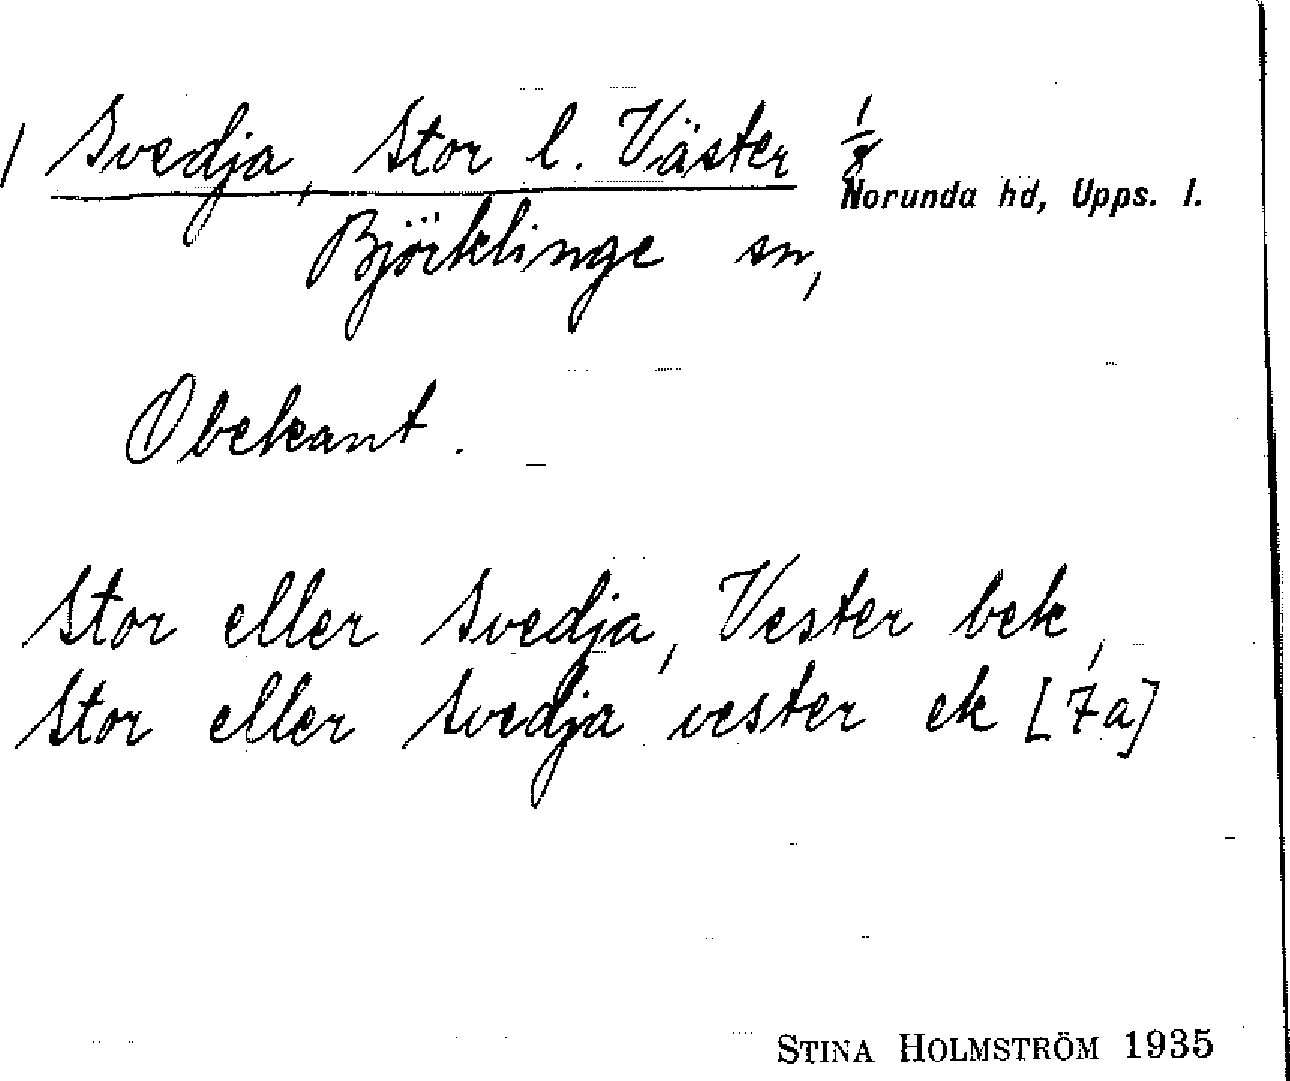 / Svedja, Stor l. Väster 1/8
Norunda hd, Upps. l.
Björklinge sn,
Obekant.
Stor eller Svedja, Vester bek,
Stor eller Svedja vester ek [7a]
STINA HOLMSTRÖM 1935